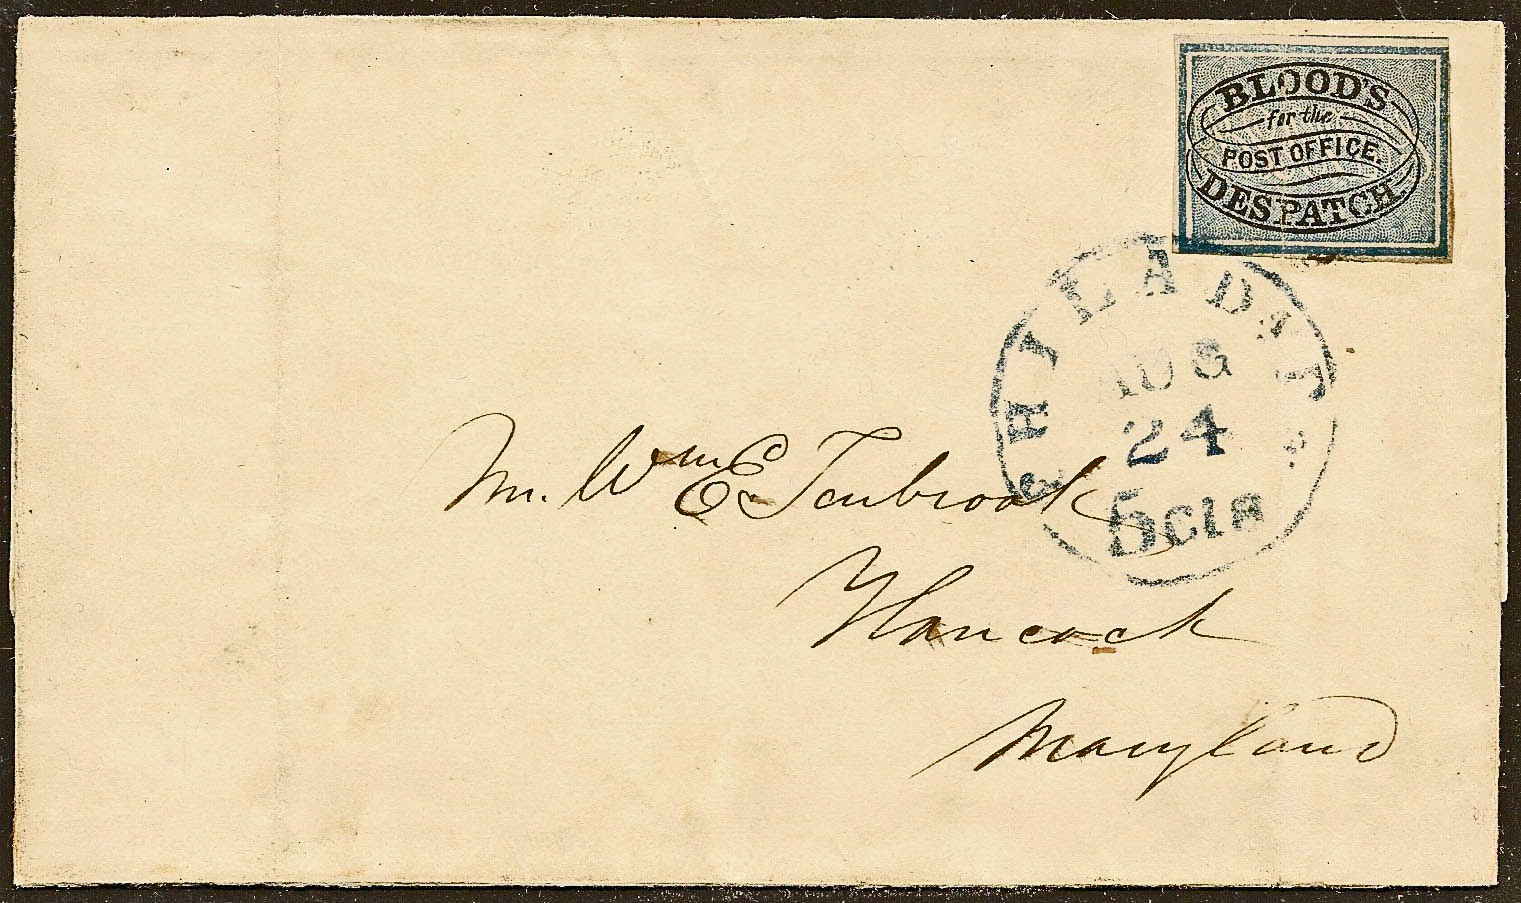 BLOOD'S
for the
POST OFFICE.
DESPATCH.
PHILADEL
AUG
24
5cts
Mr. Wm E. Tenbrook
Hancock
Maryland